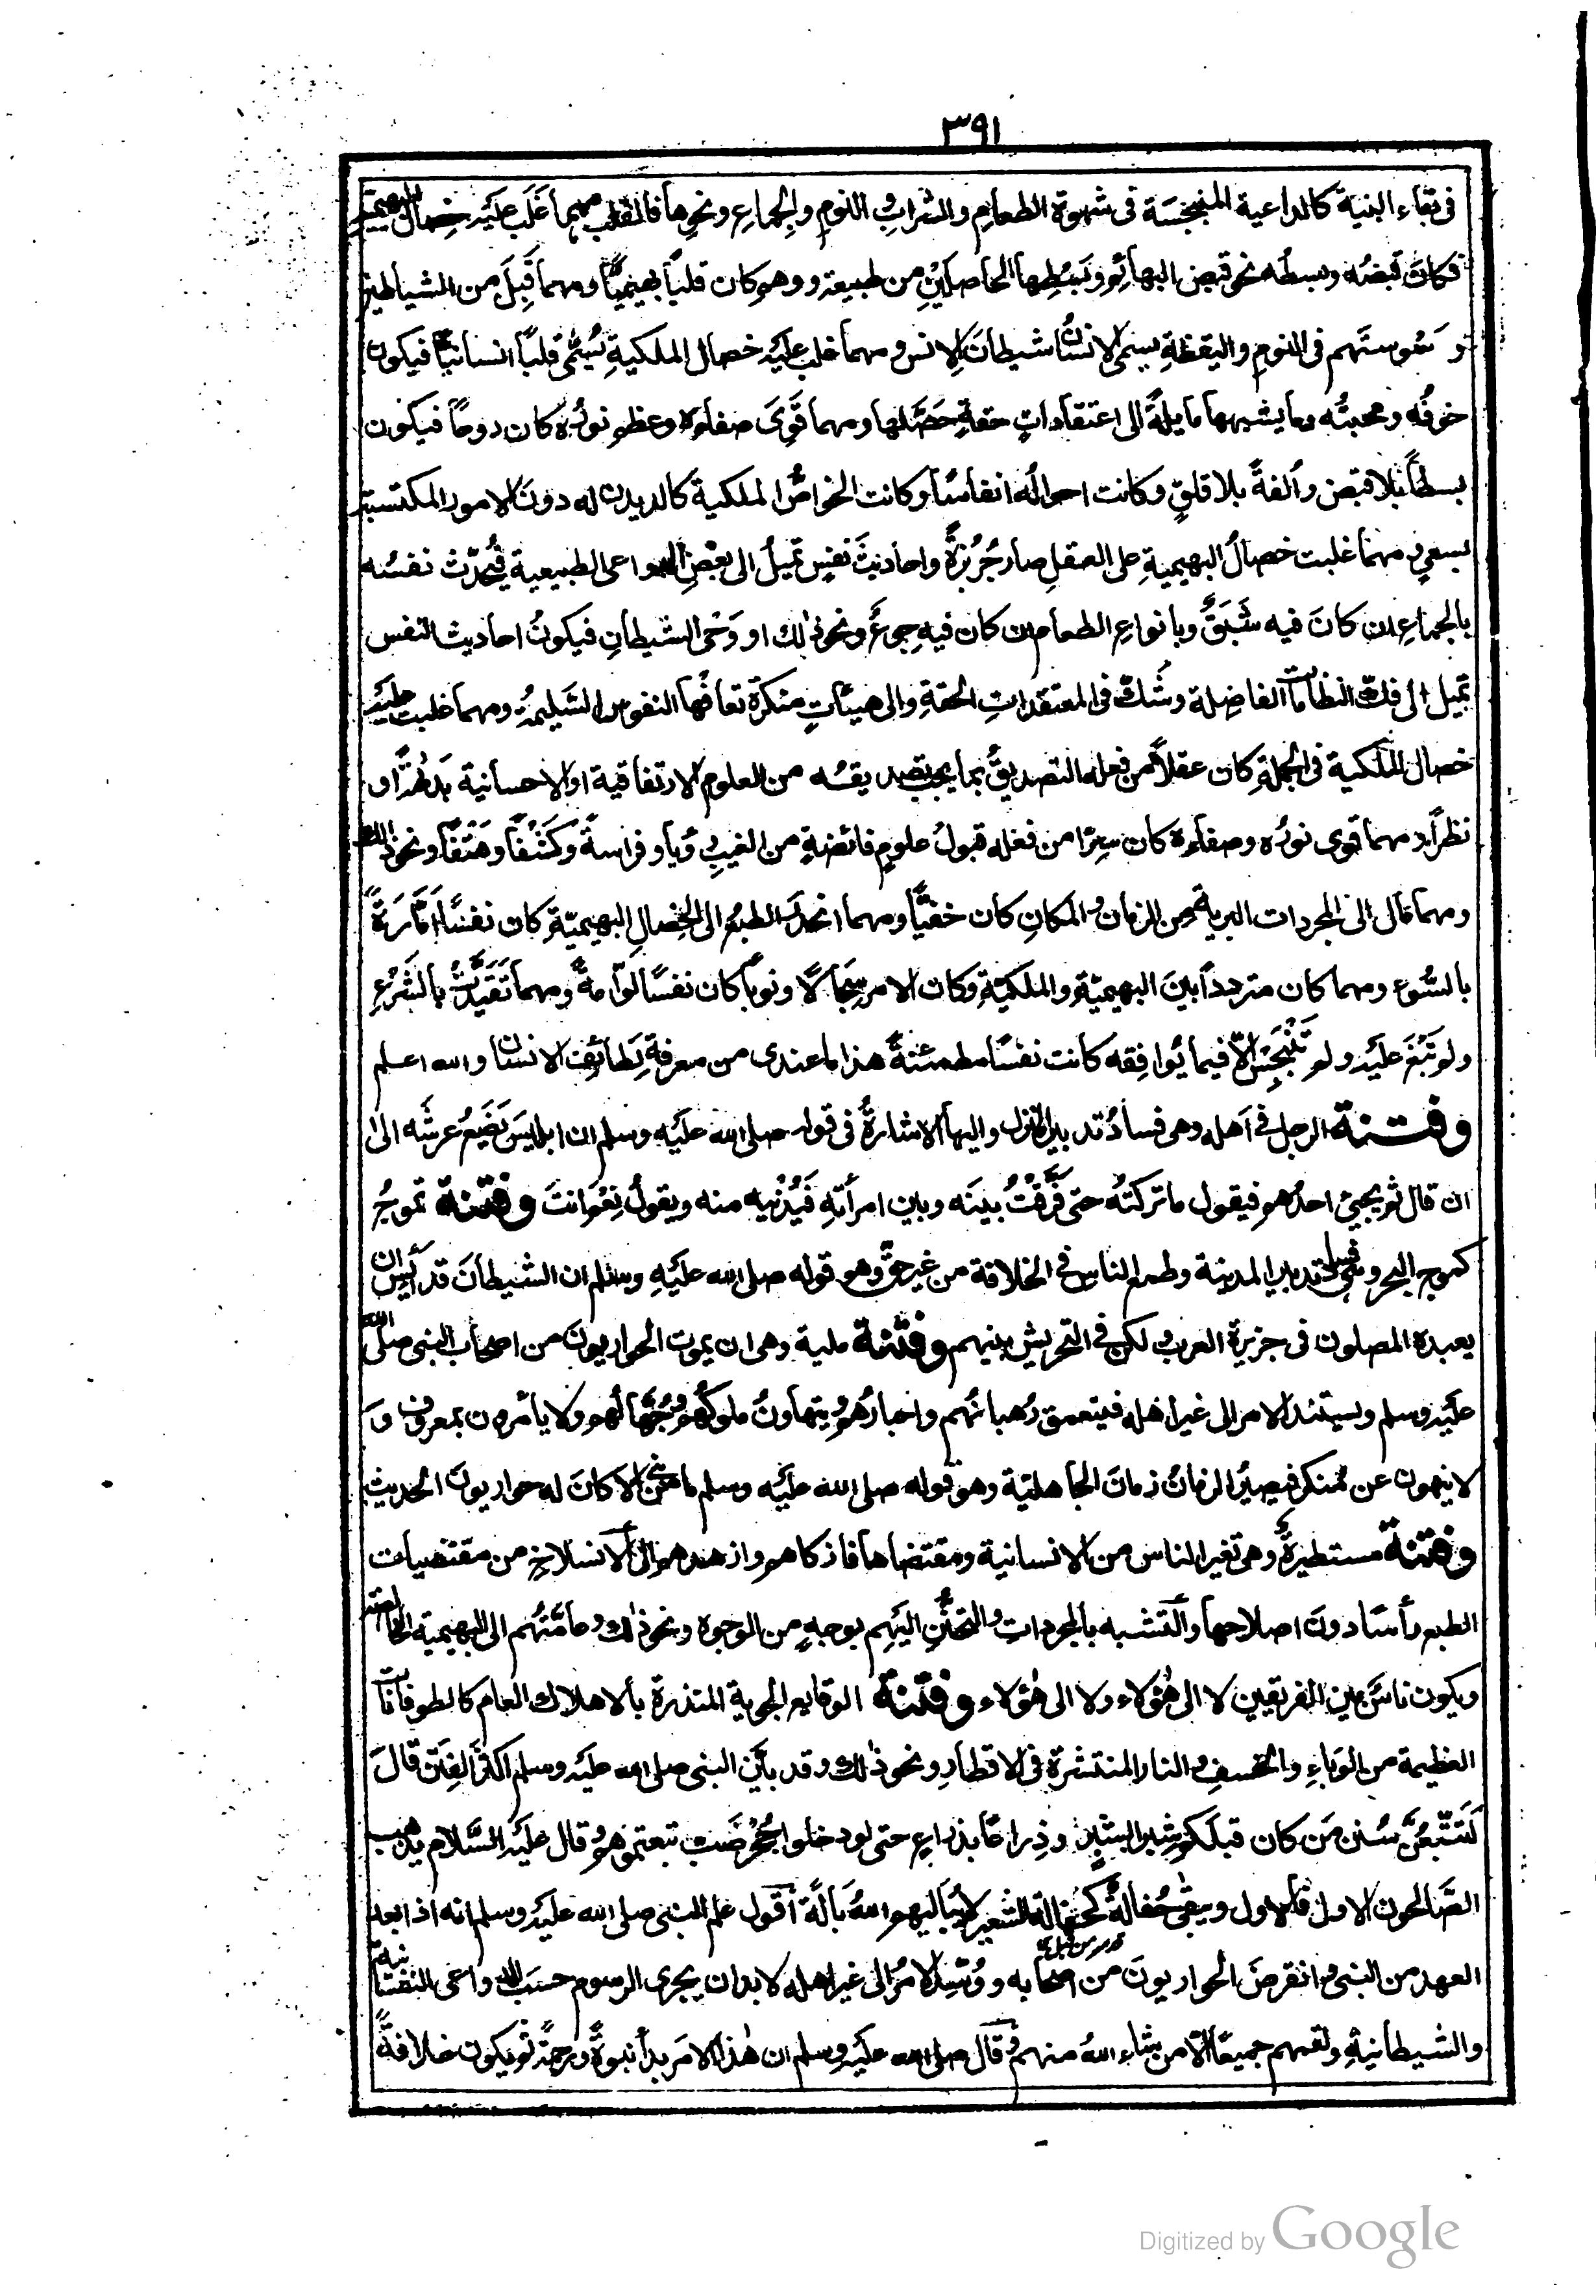 ٣٩١
فى بقاء البنية كالداعية المنبجسة فى شهوة الطعام والشراب والنوم والجماع ونحوها فالقلب مهما غلب عليه خصال البهيمية
فكان قبضه وبسطه نحو قبض البهائم وبسطها الحاصلين من طبيعة ووهم كان قلبا بهيميا ومهما قبل من الشياطين
وسوستهم فى النوم واليقظة يسمى الانسان شيطان الانس ومهما غلب عليه خصال الملكية يسمى قلبا انسانيا فيكون
خوفه ومحبته وما يشبهها مايلة الى اعتقادات حقة حصلها ومهما قوى صفاؤه وعظم نوره كان روحا فيكون
بسطا بلا قبض وألفة بلا قلق وكانت احواله انفاسا وكانت الخواص الملكية كالديدن له دون الامور المكتسبة
بسعي ومهما غلبت خصال البهيمية على العقل صار جربزة واحاديث نفس تميل الى بعض الدواعى الطبيعية فيحدث نفسه
بالجماع ان كان فيه شبق وبانواع الطعام ان كان فيه جوع ونحو ذلك او وحى الشيطان فيكون احاديث النفس
تميل الى فك النظامات الفاضلة وشك فى المعتقدات الحقة والى هيئات منكرة تعافها النفوس السليمة ومهما غلبت عليه
خصال الملكية فى الجملة كان عقلا من فعله التصديق بما يجب تصديقه من العلوم الارتفاقية او الاحسانية بداهة او
نظرا ومهما قوى نوره وصفاءه كان سرا من فعله قبول علوم فائضة من الغيب رؤيا وفراسة وكشفا وهتفا ونحو ذلك
ومهما مال الى المجردات البرية من الزمان والمكان كان خفيا ومهما انحدر الطبع الى الخصال البهيمية كان نفسا امارة
بالسوء ومهما كان مترددا بين البهيمية والملكية وكان الامر سجالا ونوبا كان نفسا لوامة ومهما تقيدت بالشرع
ولم تبغ عليه ولم تنبجس الا فيما يوافقه كانت نفسا مطمئنة هذا ما عندى من معرفة لطائف الانسان والله اعلم
وفتنة الرجل فى اهله وهى فساد تدبير المنزل واليها الاشارة فى قوله صلى الله عليه وسلم ان ابليس يضع عرشه الى
ان قال ثم يجيئ احدهم فيقول ما تركته حتى فرقت بينه وبين امرأته فيدنيه منه ويقول نعم انت وفتنة تموج
كموج البحر وهى فساد تدبير المدينة وطمع الناس فى الخلافة من غير حق وهو قوله صلى الله عليه وسلم ان الشيطان قد أيس ان
يعبده المصلون فى جزيرة العرب ولكن فى التحريش بينهم وفتنة ملية وهى ان يموت الحواريون من اصحاب النبى صلى الله
عليه وسلم ويستند الامر الى غير اهله فيتعمق رهبانهم واحبارهم ويتهاون ملوكهم وجهالهم ولا يأمرون بمعروف و
لا ينهون عن منكر فيصير الزمان زمان الجاهلية وهو قوله صلى الله عليه وسلم ما من نبى الا كان له حواريون الحديث
وفتنة مستطيرة وهى تغير الناس من الانسانية ومقتضاها فازكاهم وازهدهم الى الانسلاخ من مقتضيات
الطبع رأسا دون اصلاحها والتشبه بالمجردات والتحنن اليهم بوجه من الوجوه ونحو ذلك وعامتهم الى البهيمية الخالصة
ويكون ناس بين الفريقين لا الى هؤلاء ولا الى هؤلاء وفتنة الوقايع الجوية المنذرة بالاهلاك العام كالطوفانات
العظيمة من الوباء والخسف والنار المنتشرة فى الاقطار ونحو ذلك وقد بين النبى صلى الله عليه وسلم اكثر الفتن قال
لتتبعن سنن من كان قبلكم شبرا بشبر وذراعا بذراع حتى لو دخلوا جحر ضب تبعتموهم وقال عليه السلام يذهب
الصالحون الاول فالاول ويبقى حفالة كحفالة الشعير لا يباليهم الله بالة أقول علم النبى صلى الله عليه وسلم انه اذا بعد
العهد من النبى وانقرض الحواريون من اصحابه ووسد الامر الى غير اهله لا بد ان يجرى الرسوم حسب الدواعى النفسانية
والشيطانية وتعمهم جميعا الا من شاء الله منهم وقال صلى الله عليه وسلم ان هذا الامر بدأ نبوة ورحمة ثم يكون خلافة
Digitized by Google